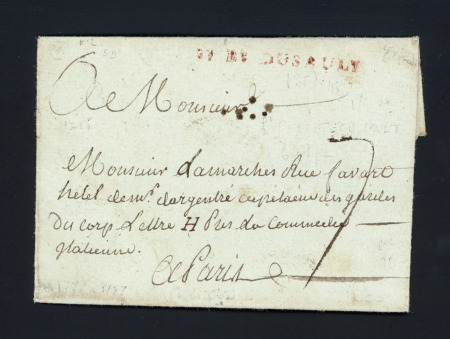 DUSAULT
A Monsieur
Monsieur Lamarches Rue favart
hotel de mr. dargentré capitaine des gardes
du corp Lettre H Pres da Commedie
ytalienne.
A Paris
7